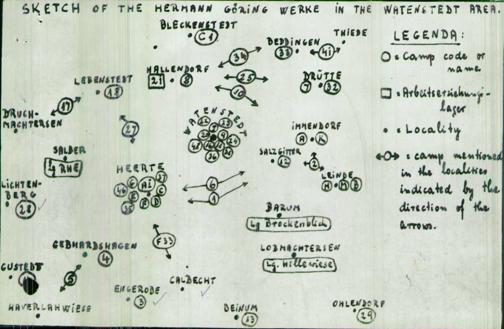 SKETCH OF THE HERMANN GÖRING WERKE IN THE WATENSTEDT AREA.
BLECKENSTEDT
C1
THIEDE
BEDDINGEN
34
33
41
LEGENDA:
O = Camp code or name
□ = Arbeitserziehungslager
• = Locality
= camp mentioned
in the localities
indicated by the
direction of the
arrows.
HALLENDORF
21
8
25
10
DRÜTTE
7
32
LEBENSTEDT
18
17
DRUCH-
MACHTERSEN
27
WATENSTEDT
IMMENDORF
A
K
SALZGITTER
12
2
LEINDE
H
M
B
SALDER
Lg RHE
HEERTE
6
1
LICHTEN-
BERG
28
BARUM
Lg Brockenblick
F33
GEBHARDSHAGEN
4
LOBMACHTERSEN
Lg. Hillewiese
GUSTEDT
5
CALBECHT
ENGERODE
3
HAVERLAHWIESE
BEINUM
13
OHLENDORF
29